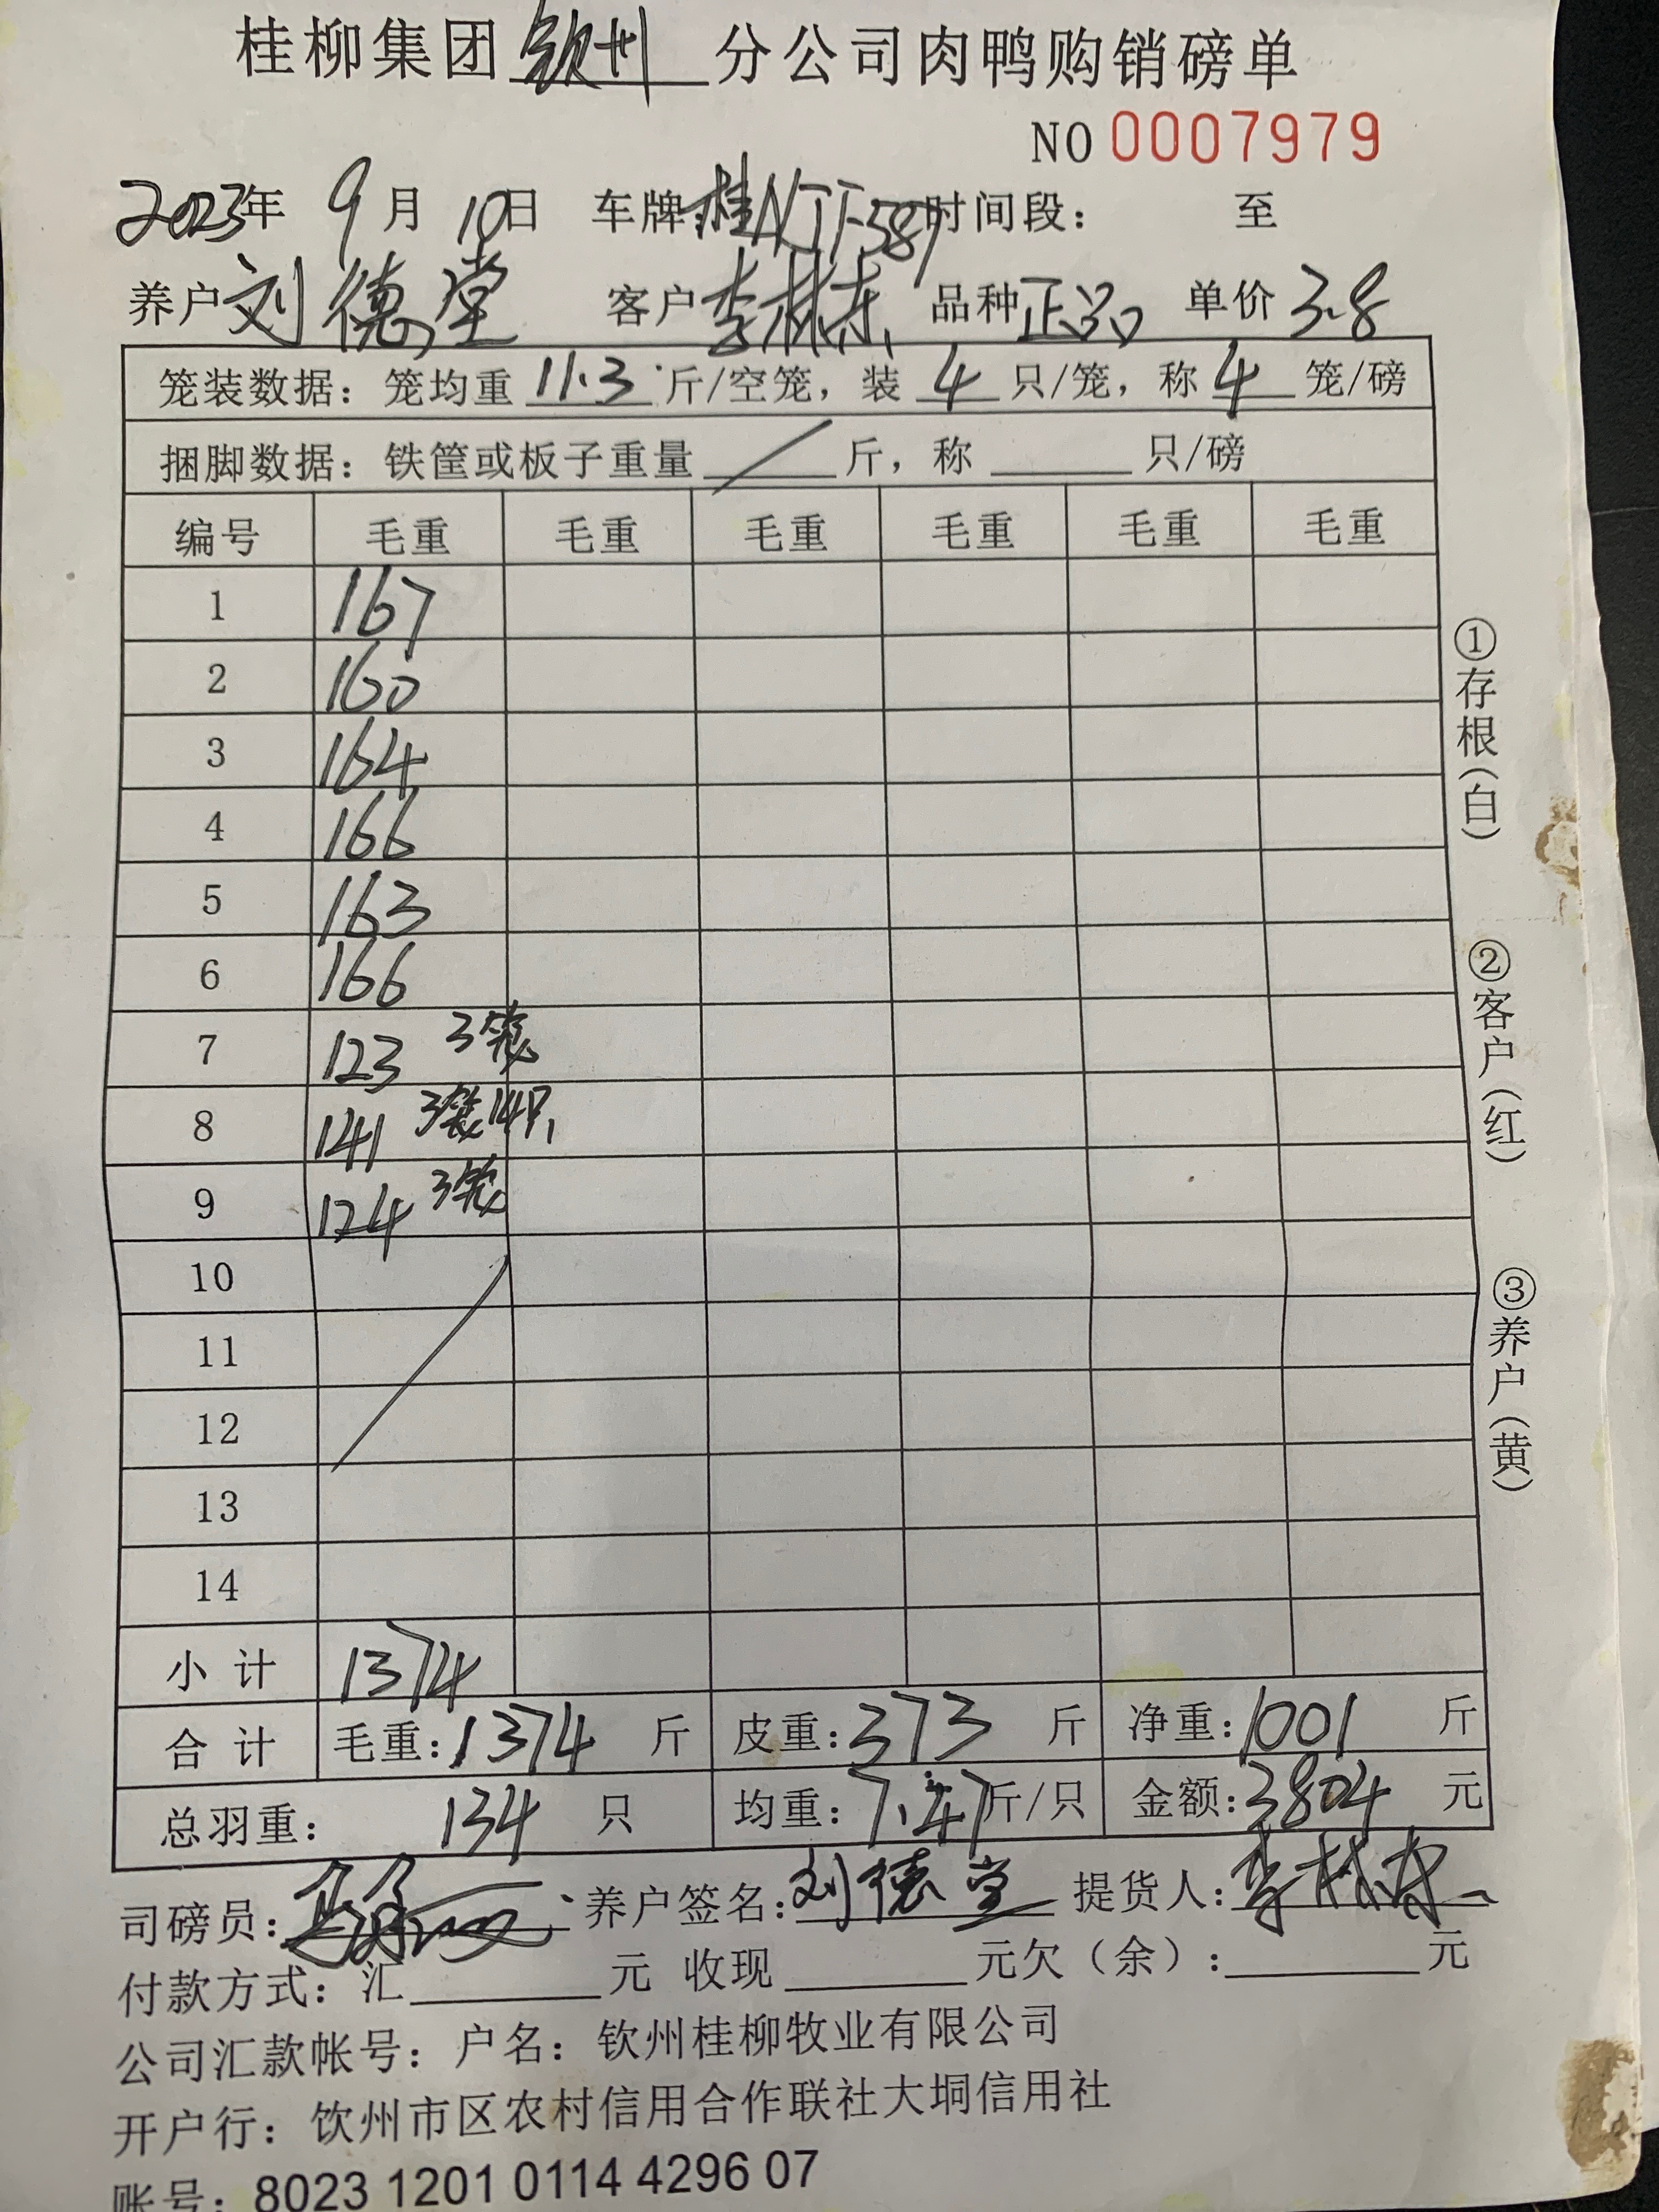 桂柳集团钦州分公司肉鸭购销磅单
NO 0007979
2023年 9月 10日 车牌:桂NJT587 时间段: 至
养户 刘德堂 客户 李林东 品种 正品 单价 3.8
笼装数据: 笼均重 11.3 斤/空笼, 装 4 只/笼, 称 4 笼/磅
捆脚数据: 铁筐或板子重量 / 斤, 称 只/磅
编号 毛重 毛重 毛重 毛重 毛重 毛重
1 167
2 160
3 164
4 166
5 163
6 166
7 123 3笼
8 141 3笼14只
9 124 3笼
10
11
12
13
14
小计 1374
合计 毛重:1374 斤 皮重:373 斤 净重:1001 斤
总羽重: 134 只 均重: 7.47斤/只 金额:3804 元
司磅员: 养户签名:刘德堂 提货人:李林东
付款方式: 汇 元 收现 元欠(余): 元
公司汇款帐号: 户名: 钦州桂柳牧业有限公司
开户行: 钦州市区农村信用合作联社大垌信用社
账号: 8023 1201 0114 4296 07
①存根(白)
②客户(红)
③养户(黄)